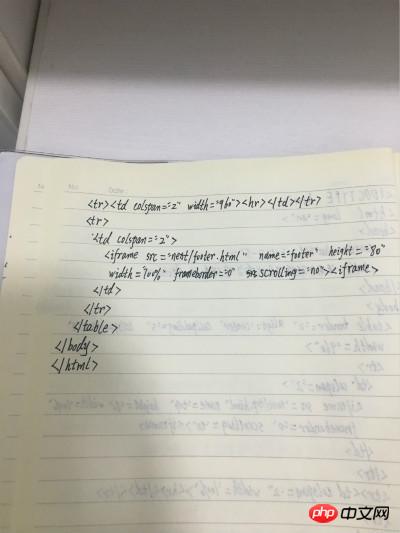 No. Date
<tr><td colspan="2" width="960"><hr></td></tr>
<tr>
<td colspan="2">
<iframe src="nest/footer.html" name="footer" height="80"
width="100%" frameborder="0" scrolling="no"><iframe>
</td>
</tr>
</table>
</body>
</html>
php 中文网